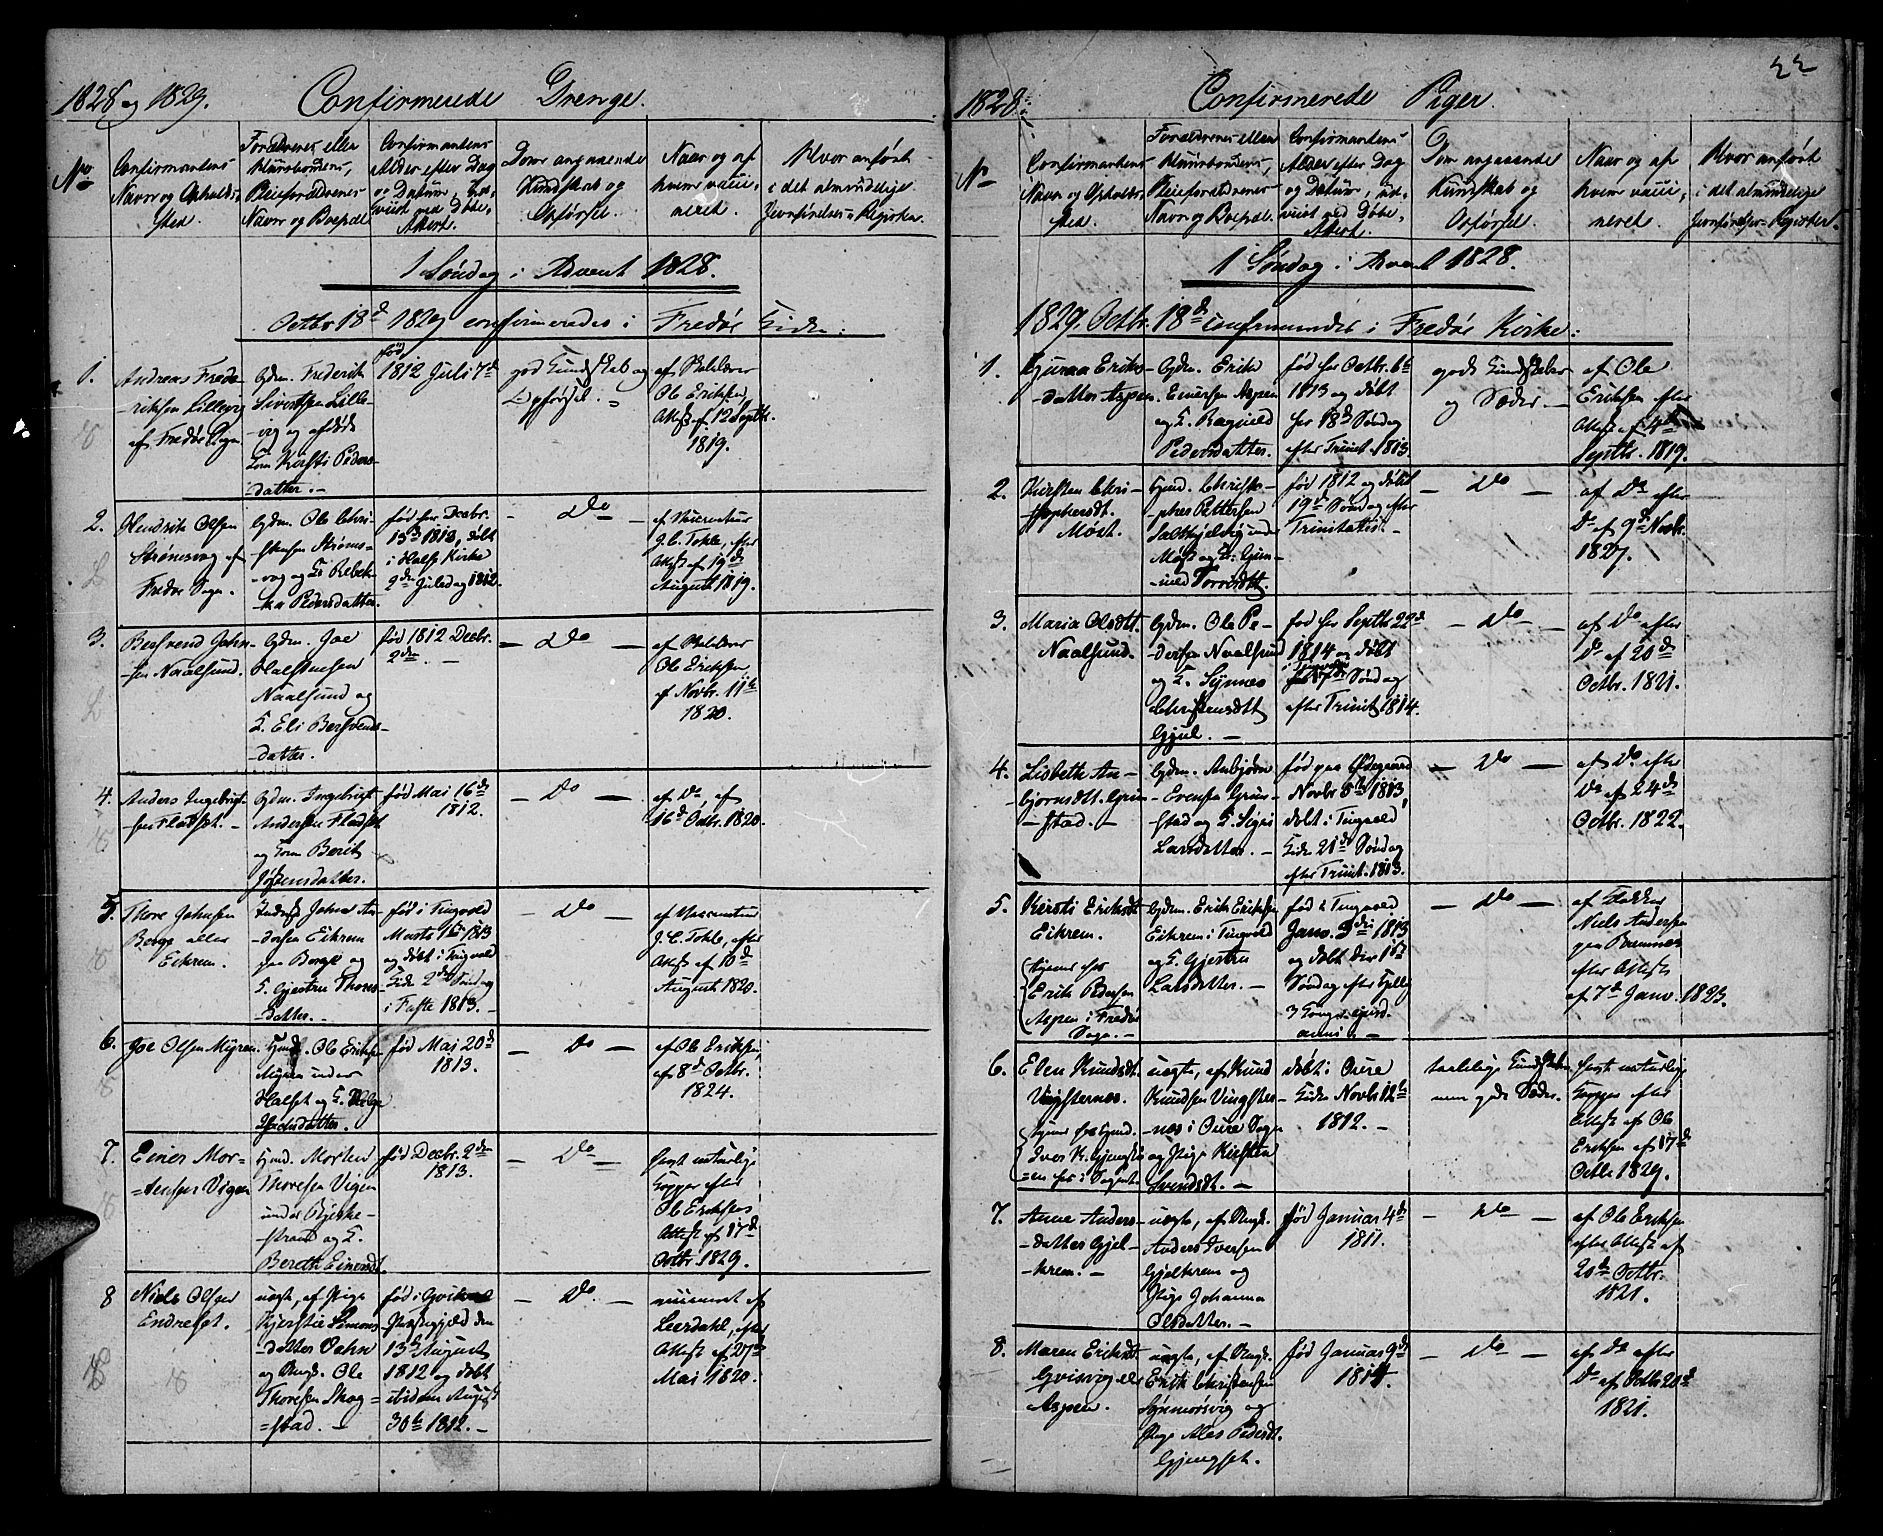 1828 og 1829. Confirmerede Drenge.
No
Confirmantens
Navn og Opholds-
sted
Forældrenes eller
Huusbondens,
Pleieforældrenes
Navn og Bopæl
Confirmantens
Alder efter Dag
og Datum, ud-
viist ved Døbe-
Attest.
Dom angaaende
Kundskab og
Opførsel.
Naar og af
hvem vacci-
neret.
Hvor anført
i det almindelige
Jevnførelses-Register.
1 Søndag i Advent 1828.
Octbr 18d 1829 confirmeredes i Fredøe Kirke:
1.
Andreas Frede-
riksen Lillevig
af Fredøe Sogn
Gdm. Frederik
Sivertsen Lille-
vig og afdøde
Kone Kirsti Peders-
datter. –
født
1812 Juli 7d
god Kundskab og
Opførsel. –
af
Ole Eriksen,
Attest af 12 Septbr.
1819.
2.
Hendrik Olsen
Strømsvag af
Fredøe Sogn.
Gdm. Ole Chri-
stensen Strøms-
vag og K. Rebek-
ka Pedersdatter.
født her Decbr.
13d 1812, døbt
i Halse Kirke
2den Juledag 1812.
– Do –
af Vaccinateur
J. C. Tohle, efter
Attest af 19de
August 1819.
3.
Bersvend John-
sen Naalsund.
Gdm. Joe
Halstensen
Naalsund og
K. Eli Bersvends-
datter.
født 1812 Decbr.
2den –
– Do –
af
Ole Eriksen
af Novbr. 11te
1820.
4.
Anders Ingebrigt-
sen Fladset. –
Gdm. Ingebrigt
Andersen Fladset
og Kone Berit
Jøstensdatter.
født Mai 16de
1812.
– Do –
af Do af
16d Octbr. 1820.
5.
Thore Johnsen
Berge eller
Eikrem.
Inderst John An-
dersen Eikrem
paa Berge og
K. Gjertru Thores-
datter. –
født i Tingvold
Marts 1ste 1813
og døbt i Tingvold
Kirke 2den Søndag
i Faste 1813. –
– Do –
af Vaccinateur
J. C. Tohle, efter
Attest af 10de
August 1820.
6.
Joe Olsen Myren.
Hmd. Ole Eriksen
Myren under
Halset og K.
født Mai 20d
1813.
– Do –
af Ole Eriksen,
af 8d Octbr.
1824.
7.
Einer Mor-
tensen Vigen
Hmd. Morten
Thoresen Vigen
under Bjerke-
strand og K.
Bereth Einersdt.
født Decbr. 2den
1813.
– Do –
havt naturlige
Kopper efter
Ole Eriksens
Attest af 17de
Octbr 1829.
8
Niels Olsen
Endreset.
uægte, af Pige
Kjerstie Simons-
datter Dahn
og Ungk. Ole
Thoresen Skog-
stad. –
født i
Præstegjeld den
13de August
1812 og døbt
August
30te 1812. –
– Do –
vaccineret af
Leerdahl, efter
Attest af 27de
Mai 1820.
22
1828. Confirmerede Piger.
No
Confirmantens
Navn og Opholds-
sted.
Forældrenes eller
Huusbondens,
Pleieforældrenes
Navn og Bopæl.
Confirmantens
Alder efter Dag
og Datum, ud-
viist ved Døbe-
Attest.
Dom angaaende
Kundskab og
Opførsel.
Naar og af
hvem vacci-
neret.
Hvor anført
i det almindelige
Jevnførelses-Register.
1 Søndag i Advent 1828.
1829. Octbr. 18de confirmeredes i Fredøe Kirke:
1.
Gjuraa Eriks-
datter Aspen.
Gdm. Erik
Einersen Aspen
og K. Ragnild
Pedersdatter.
født her Octbr. 6te
1813 og døbt
her 18de Søndag
efter Trinit. 1813
gode Kundskaber
og Sæder. –
af Ole
Eriksen efter
Attest af 4de
Septbr. 1819.
2.
Kirsten Chri-
stophersdt.
Møst.
Hmd. Christo-
pher Pettersen
under
Møst og K. Gun-
nild
født 1812 og døbt
19de Søndag efter
Trinitatis.
– Do –
af Do efter
Do af 9de Novbr.
1827.
3.
Maria Olsdt.
Naalsund.
Gdm. Ole Pe-
dersen Naalsund
og K. Synnes
Christensdt
Gjul. –
født her Septbr 22d
1814 og døbt
Søndag
efter Trinit. 1814.
– Do –
af Do efter
Do af 20de
Octbr. 1821.
4.
Lisbeth An-
bjørnsdt. Grim-
stad. –
Gdm. Anbjørn
Evensen Grim-
stad og K. Sigri
Larsdatter. –
født paa Ødegaard
Novbr 8de 1813,
døbt i Tingvold
Kirke 21de Søndag
efter Trinit. 1813.
– Do –
af Do efter
Do af 24de
Octbr. 1822.
5.
Kirsti Eriksdt
Eikrem.
(tjener hos
Erik Pedersen
Aspen i Fredøe
Sogn. –
Gdm. Erik Eriksen
Eikrem i Tingvold
og K. Gjertru
Larsdatter. –
født i Tingvold
Janv. 3die 1813
og døbt der 1ste
Søndag efter Hellig
3 Konger ejusd.
anni. –
– Do –
af Klokker
Niels Andersen
paa
efter Attest
af 7de Janv. 1823.
6.
Elen Knudsdt.
Vingsternes.
(tjener hos Gmd.
Iver K. Gjengstø
her i Sognet.
uægte, af Knud
Knudsen Vingster-
nes i Oure Sogn
og Pige Kirsten
Svendsdt. –
døbt i Oure
Kirke Novbr 12te
1812. –
taalelige Kundskaber
men gode Sæder.
havt naturlige
Kopper efter
Attest af Ole
Eriksen af 17de
Octbr 1829.
7.
Anne Anders-
datter Gjel-
krem. –
uægte, af Ungk.
Anders Iversen
Gjelkrem og
Pige Johanna
Olsdatter. –
født Januar 4de
1811.
– Do –
af Ole Eriksen
efter Attest af
20de Octbr.
1821.
8.
Maren Eriksdt
Qvisvig eller
Aspen.
uægte, af Ungk.
Erik Christensen
og
Pige Ales Pedersdt.
Gjengset.
født Januar 9de
1814.
– Do –
af Do efter
Do af Octbr 20de
1821.